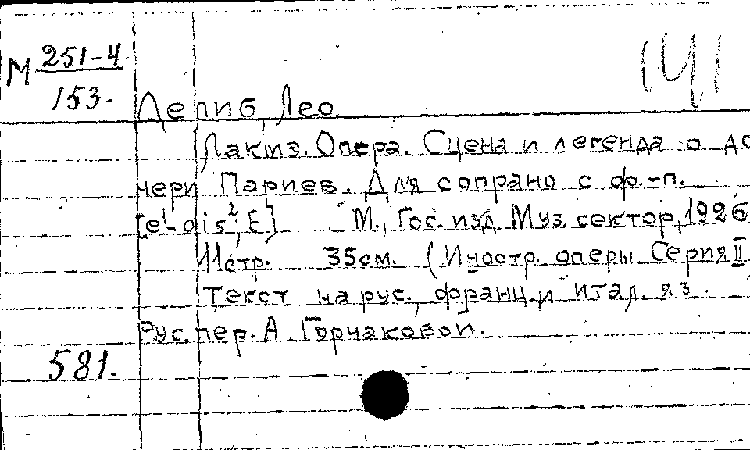 М 251-4
153.
Делиб, Лео
Лакмэ. Опера. Сцена и легенда о до
чери Париев. Для сопрано с ф.-п.
[e¹-gis², E] М., Гос. изд. Муз. сектор, 1926
11 стр. 35 см. (Иностр. оперы Серия II.
Текст на рус., франц. и итал. яз.
Рус. пер. А. Горчаковой.
581.